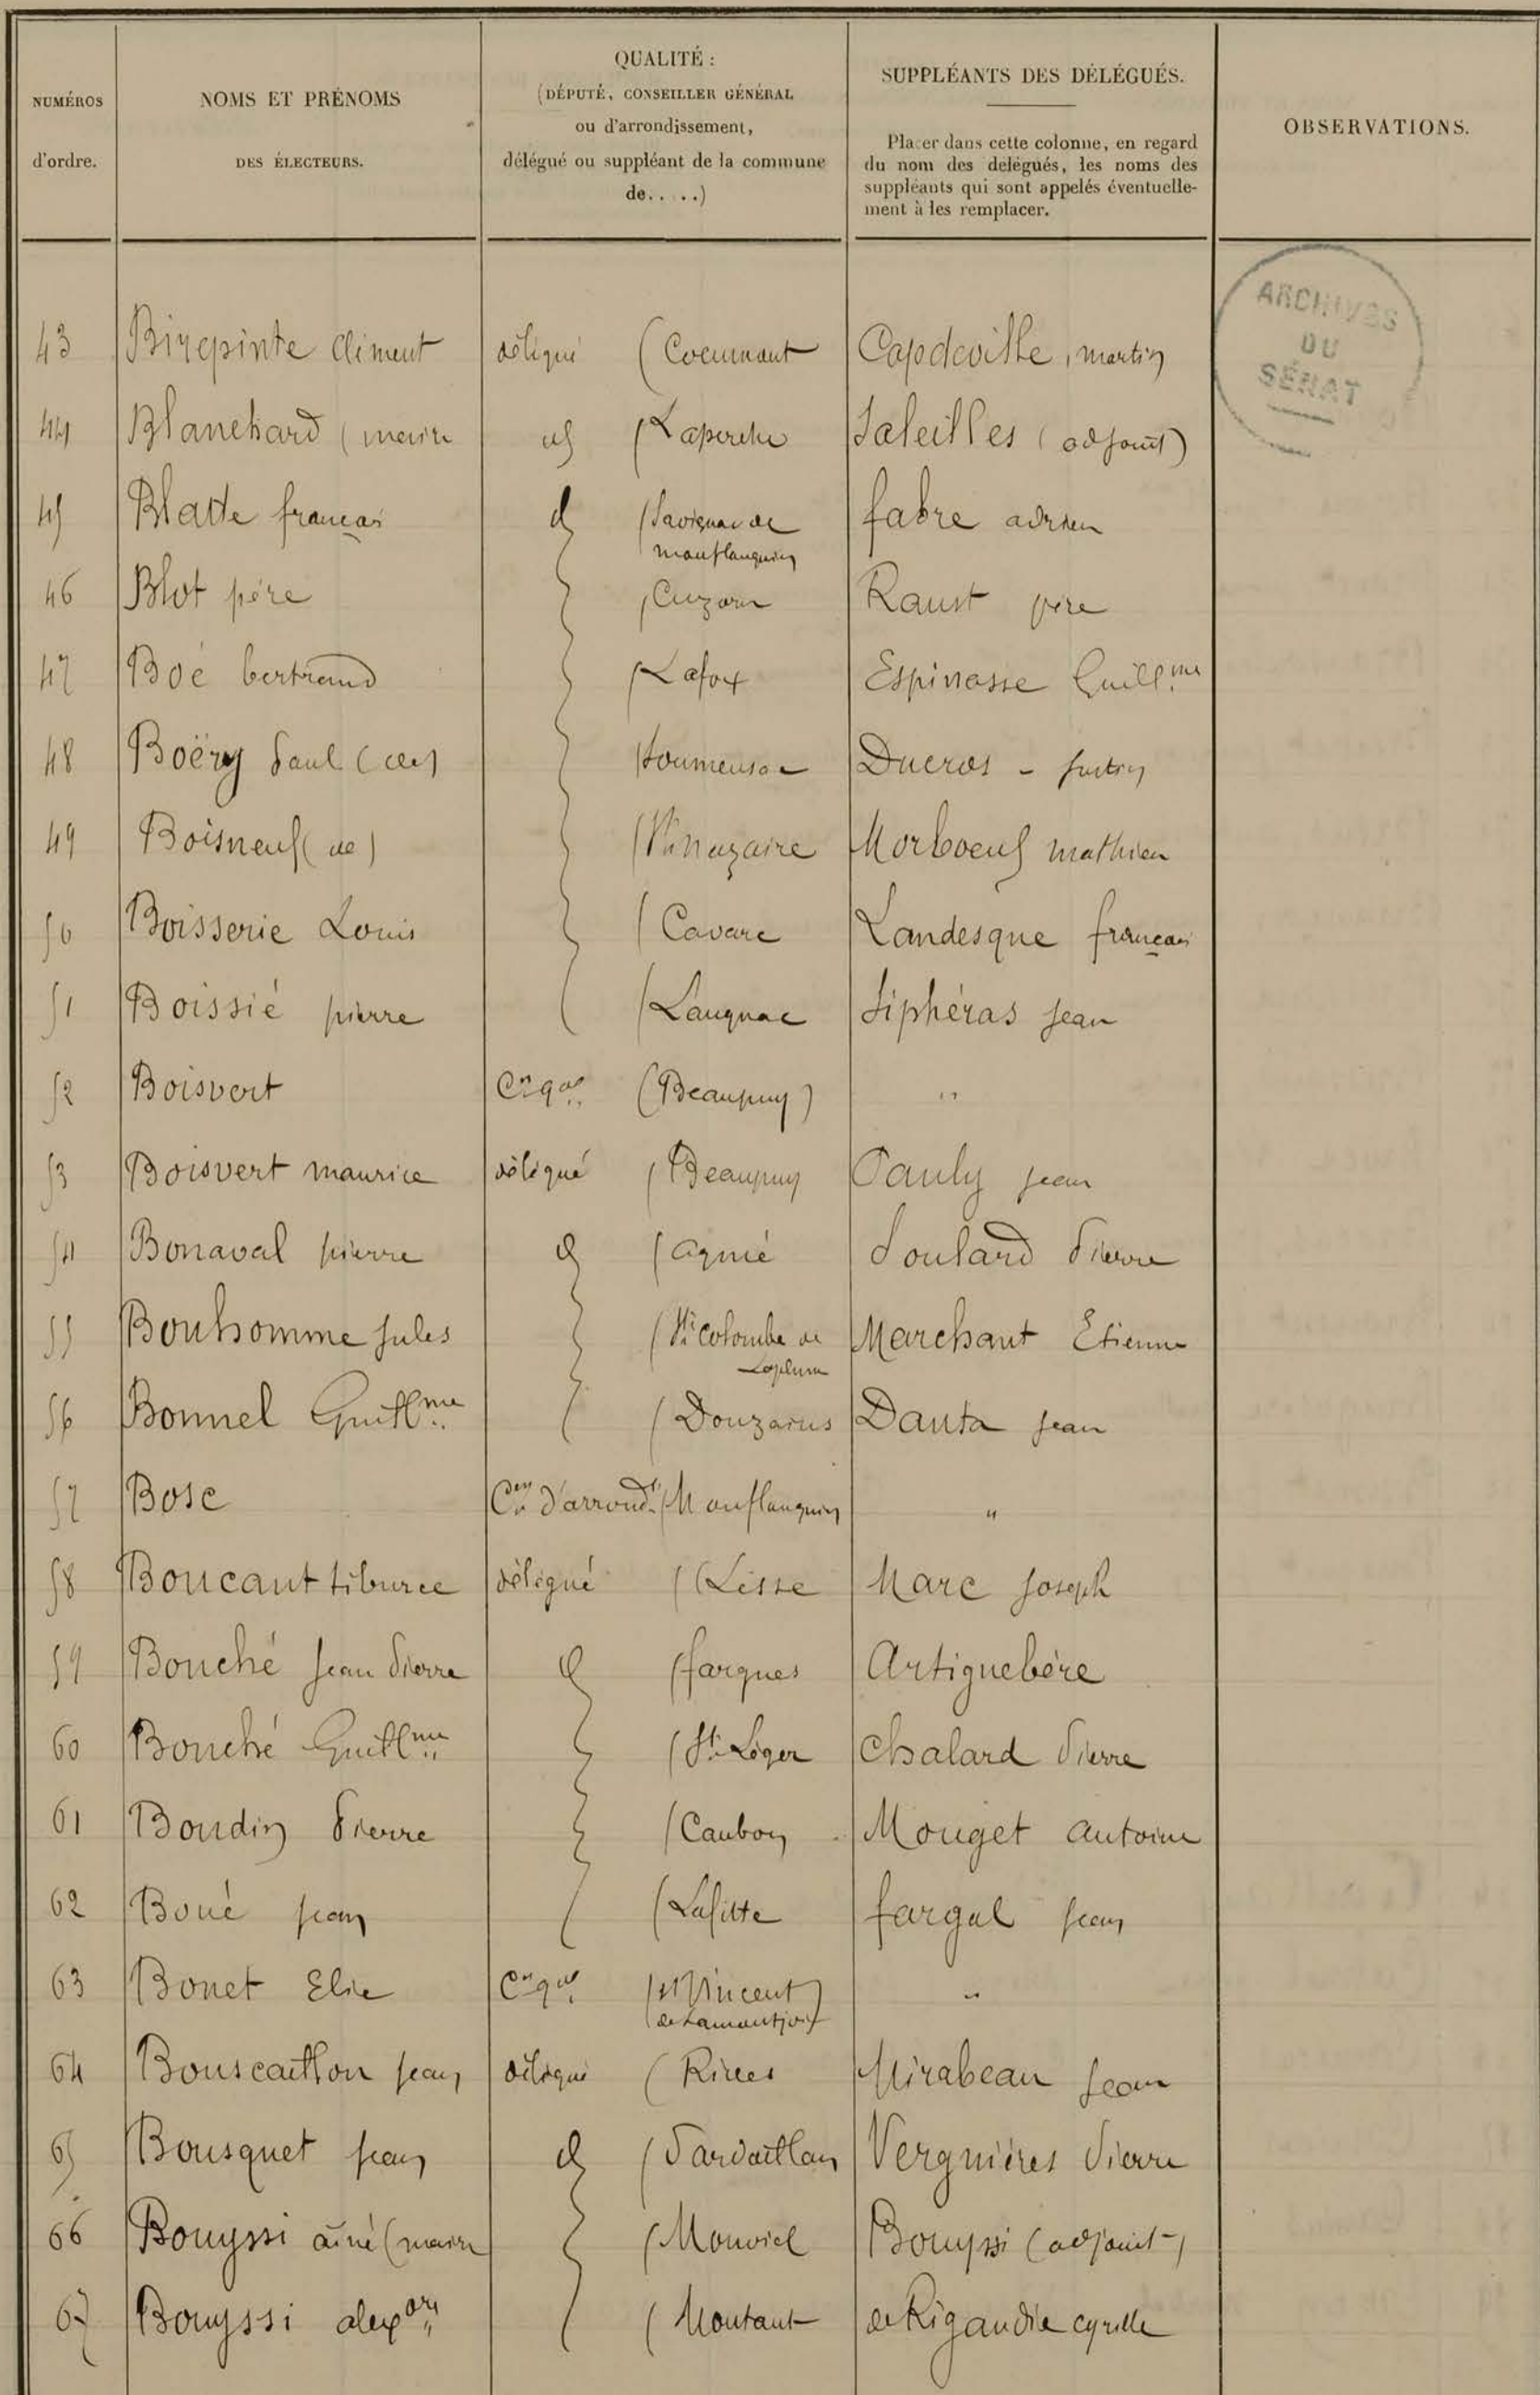 NUMÉROS
d'ordre.
NOMS ET PRÉNOMS
DES ÉLECTEURS.
QUALITÉ :
(DÉPUTÉ, CONSEILLER GÉNÉRAL
ou d'arrondissement,
délégué ou suppléant de la commune
de.....)
SUPPLÉANTS DES DÉLÉGUÉS.
Placer dans cette colonne, en regard
du nom des délégués, les noms des
suppléants qui sont appelés éventuelle-
ment à les remplacer.
OBSERVATIONS.
ARCHIVES
DU
SÉNAT
43 Birepinte Clément délégué (Cocumont Capdeville, martin
44 Blanchard (maire (Laperche Saleilles (adjoint)
45 Blatte françois (Savignac de fabre adrien
monflanquin
46 Blot père (Cuzorn Raust père
47 Boé bertrand (Lafox Espinasse Guillme
48 Boëry Paul (de) Houmensac Ducros - justin
49 Boisneuf (de) (St nazaire Morboeuf mathieu
50 Boisserie Louis (Cavarc Landesque françois
51 Boissié pierre (Laugnac Siphéras jean
52 Boisvert Cer gal (Beaupuy) "
53 Boisvert maurice délégué (Beaupuy Pauly jean
54 Bonaval pierre (agmé Soulard Pierre
55 Bonhomme jules (Ste Colombe de Marchant Etienne
Laplume
56 Bonnel Guillme (Douzains Danta jean
57 Bosc Cer d'arrondt (Monflanquin "
58 Boucaut tiburce délégué (Lisse Marc joseph
59 Bouché jean Pierre (fargues Artiguebère
60 Bouché Guillme (St Léger Chalard Pierre
61 Boudin Pierre (Caubon Mouget antoine
62 Boué jean (Lafitte fargal jean
63 Bouet Elie Cer gal (St Vincent) "
(de Lamontjoie)
64 Bouscaillou jean délégué (Rives Mirabeau jean
65 Bousquet jean (Pardaillan Vergnières Pierre
66 Bouyssi aîné (maire (Monviel Bouyssi (adjoint)
67 Bouyssi alexdre (Montaut de Rigaudie cyrille